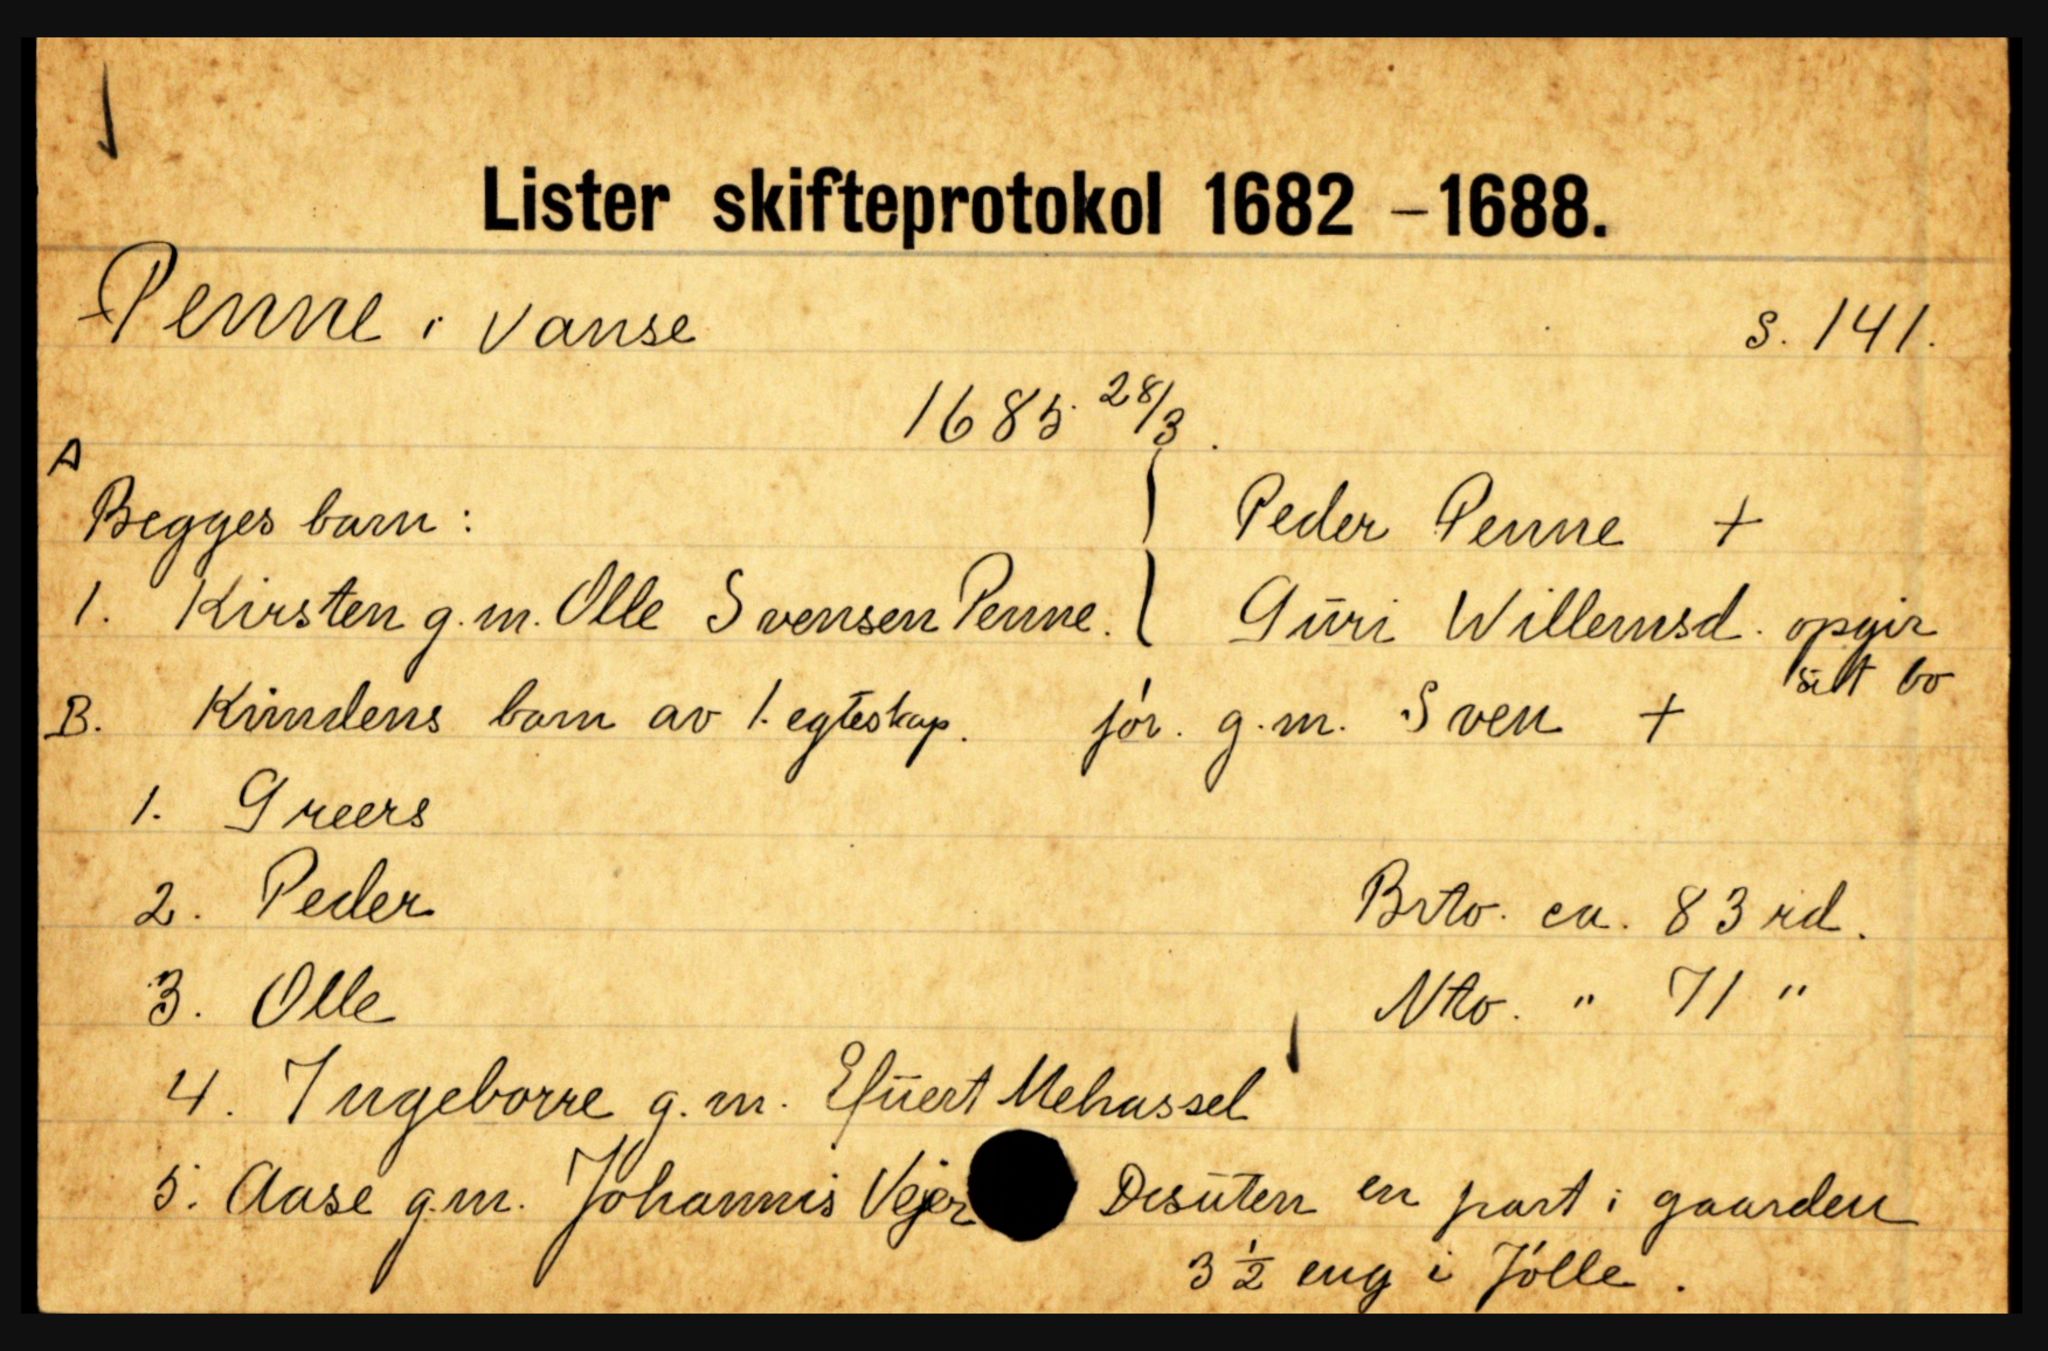 Lister skifteprotokol 1682 - 1688.
Penne i Vanse s. 141.
1685 28/3.
A
Begges barn: Peder Penne +
1. Kirsten g.m. Olle Svensen Penne. Guri Willemsd. opgir sitt bo
B. Kvindens barn av 1. egteskap. før. g.m. Sven +
1. Greers
2. Peder Brto. ca. 83 rd.
3. Olle Nto. " 71 "
4. Ingeborre g.m. Efuert Mehassel
5. Aase g.m. Johannis Vejer Desuten en part i gaarden
3 1/2 eng i Jølle.